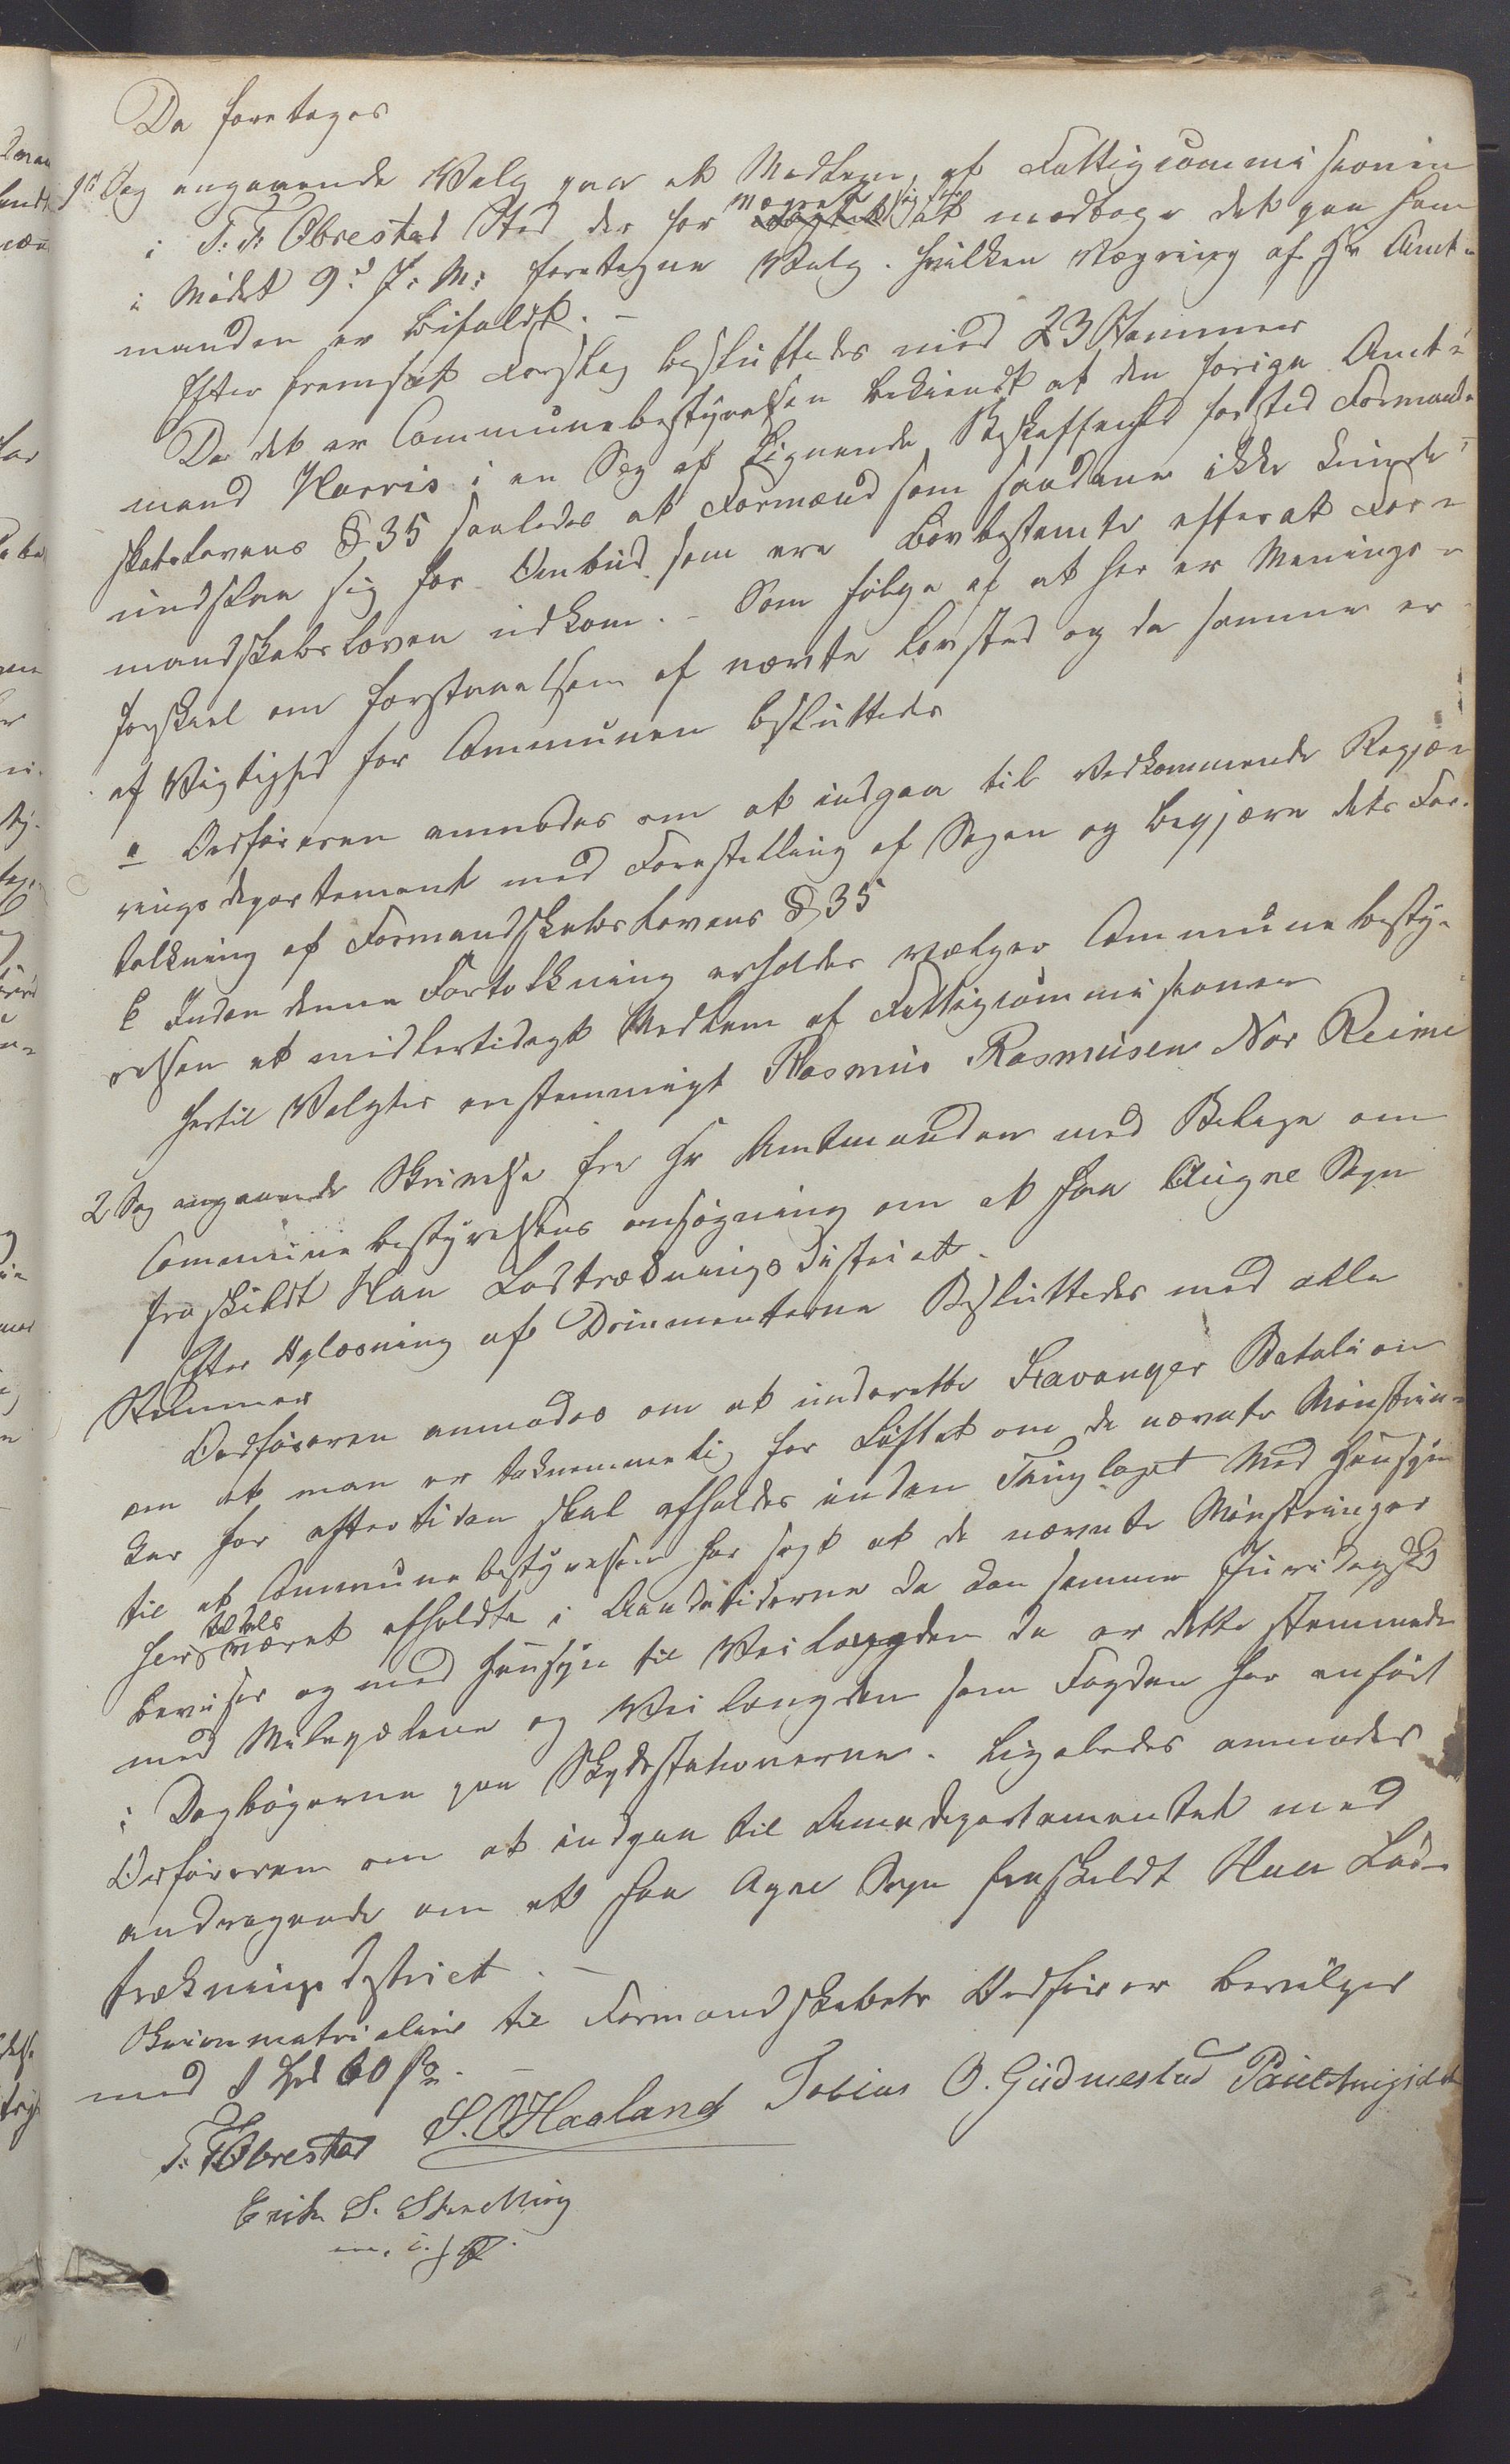 Da foretoges
1o Sag angaaende Valg paa et Medlem af Fattigcommissionen
i T: T: Obrestad Sted der har vægret sig for at modtage det paa ham
i Mødet 9d f: M: foretagne Valg. hvilken Vægring af Hr Amt-
manden er bifaldt. -
Efter fremsat Forslag besluttedes med 23 Stemmer
Da det er Communebestyrelsen bekiendt at den forige Amt-
mand Harris i en Sag af lignende Beskaffenhed forstod Formand-
skabslovens § 35 saaledes at Formænd som saadane ikke kunde
undslaa sig for Ombud som ere Lovbestemte efterat For-
mandskabsloven udkom. - Som følge af at her er Menings-
forskiel om forstaaelsen af nævnte Lovsted og da samme er
af Vigtighed for Communen besluttedes
a Ordføreren anmodes om at indgaa til Vedkommende Regjæ-
ringsdepartement med Forestilling af Sagen og begjære dets For-
tolkning af Formandskabslovens § 35
b Inden denne Fortolkning erholdes vælger Communebesty-
relsen et midlertidigt Medlem af Fattigcommissionen
hertil Valgtes enstemmigt Rasmus Rasmusen Nør Reime
2 Sag angaaende Skrivelse fra Hr Amtmanden med Bilage om
Communebestyrelsens ansøgning om at faa Augne Sogn
fraskildt Haa Lodtræknings District.
Efter Oplæsning af Documenterne Besluttedes med alle
Stemmer
Ordføreren anmodes om at underrette Stavanger Batalion
om at man er taknemmelig for Løftet om de nævnte Mønstrin-
ger for eftertiden skal afholdes inden Tinglaget Med Hensyn
til at Communebestyrelsen har sagt at de nævnte Mønstringer
her tildels været afholdte i Aandetiderne da kan samme
bevises og med Hensyn til Veilængden da er dette stemmende
med Milepælene og Veilængden som Fogden har anført
i Dagbøgerne paa Skydsstationerne. Ligeledes anmodes
Ordføreren om at indgaa til Armedepartementet med
andragende om at faa Ogne Sogn fraskildt Haa Lod-
trækningsdistrict. -
Skrivematrialier til Formandskabets Ordfører bevilges
med 1 Spd 60 s. -
T. T. Obrestad S. O Haaland Tobias O. Gudmestad
Erik S. Skretting
m. i. f P.